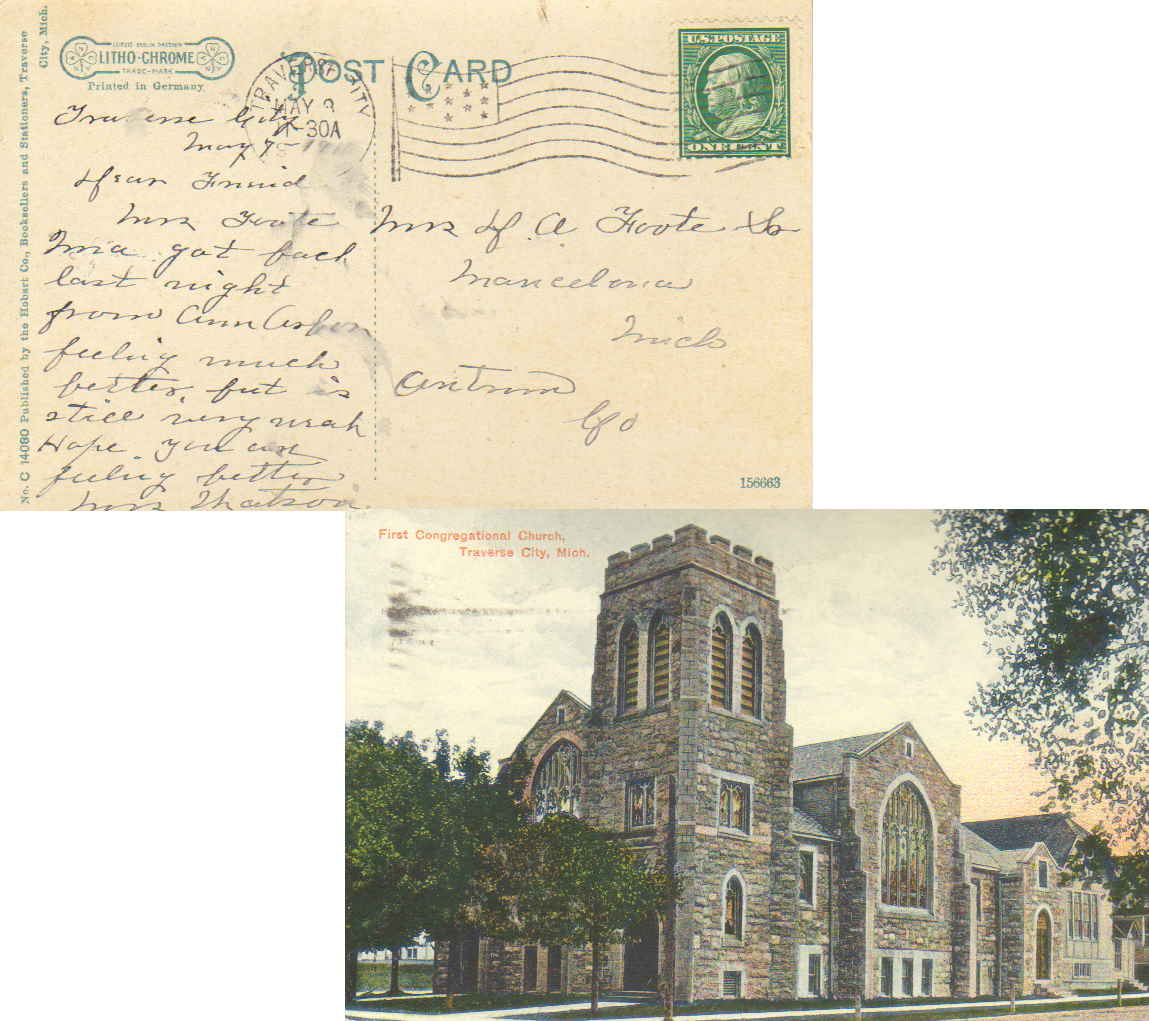 No. C 14080 Published by the Hobart Co., Booksellers and Stationers, Traverse
City, Mich.
LEIPZIG BERLIN DRESDEN
LITHO-CHROME
TRADE-MARK
Printed in Germany
POST CARD
TRAVERSE CITY
MAY 8
1-30A
U.S. POSTAGE
ONE CENT
Traverse City
May 7
Dear Friend
Mrs Foote
got back
last night
from Ann Arbor
feeling much
better, but is
still very weak
Hope you are
feeling better
Mrs Watson
Mrs D. A Foote Sr
Mancelona
Mich
Antrim
Co
156663
First Congregational Church,
Traverse City, Mich.